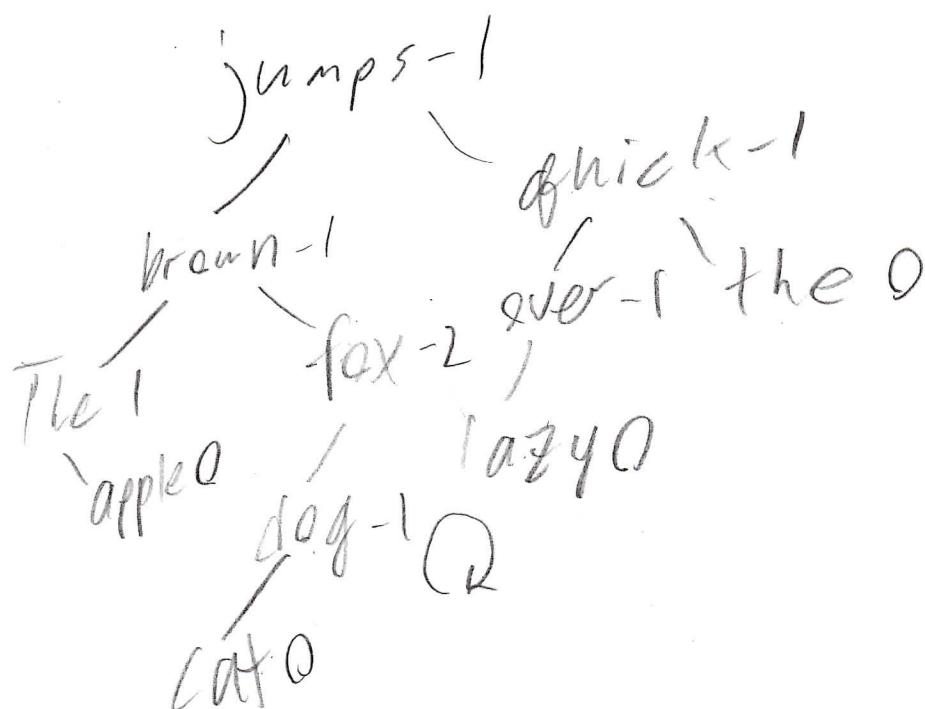 jumps-1
quick-1
brown-1
over-1 the 0
fox-2
The 1
lazy 0
apple 0
dog-1
cat 0